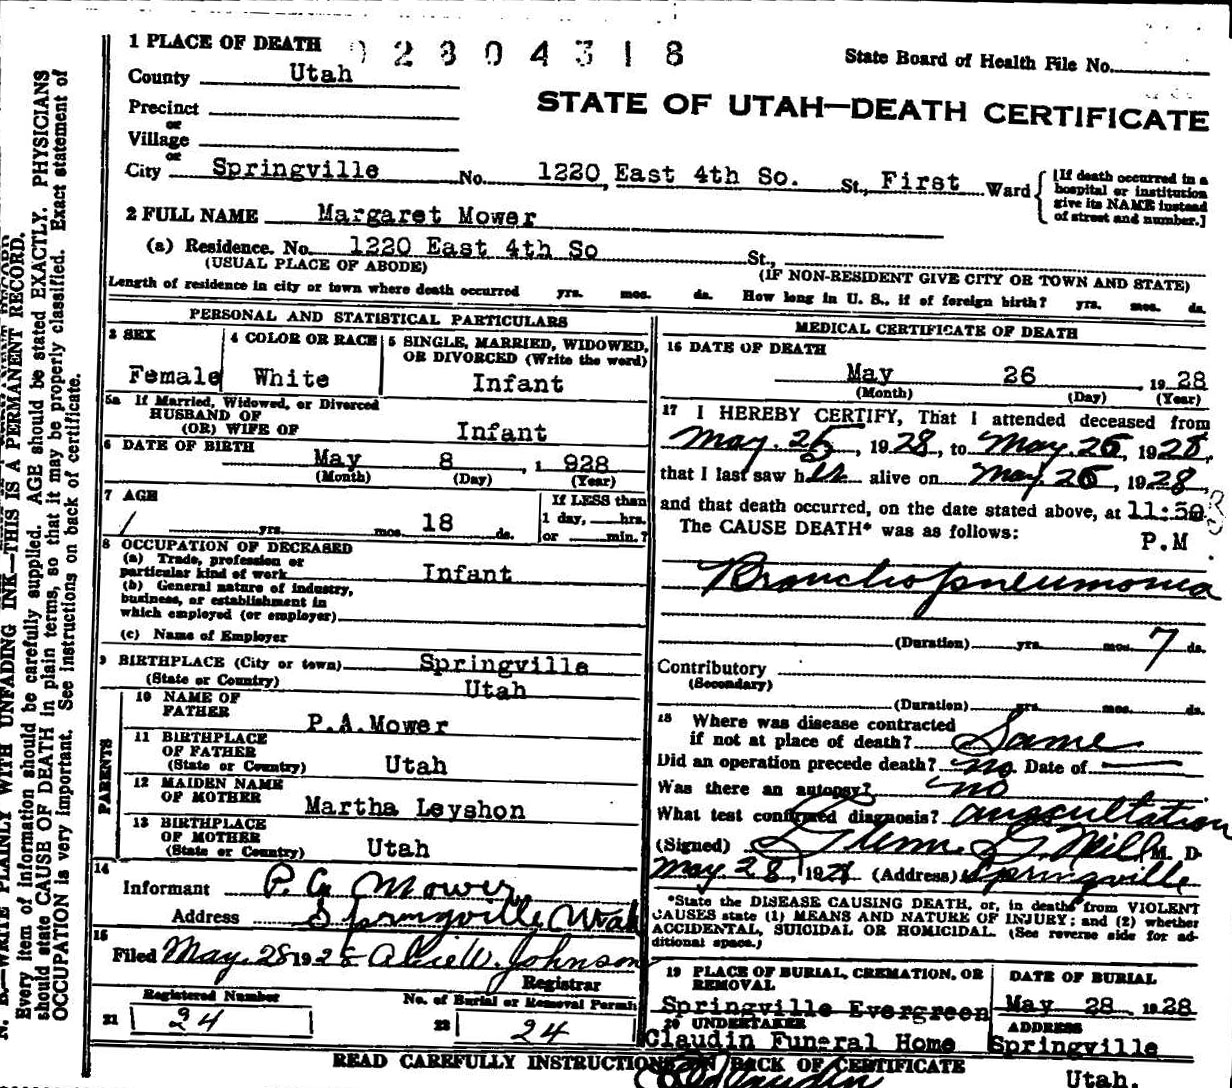 1 PLACE OF DEATH 02804318 State Board of Health File No.
County Utah
STATE OF UTAH—DEATH CERTIFICATE
Precinct
or
Village
or
City Springville No. 1220, East 4th So. St., First Ward
[If death occurred in a
hospital or institution
give its NAME instead
of street and number.]
2 FULL NAME Margaret Mower
(a) Residence. No. 1220 East 4th So St.,
(USUAL PLACE OF ABODE) (IF NON-RESIDENT GIVE CITY OR TOWN AND STATE)
Length of residence in city or town where death occurred yrs. mos. ds. How long in U. S., if of foreign birth? yrs. mos. ds.
PERSONAL AND STATISTICAL PARTICULARS
3 SEX
Female
4 COLOR OR RACE
White
5 SINGLE, MARRIED, WIDOWED,
OR DIVORCED (Write the word)
Infant
5a If Married, Widowed, or Divorced
HUSBAND OF
(OR) WIFE OF Infant
6 DATE OF BIRTH
May 8, 1928
(Month) (Day) (Year)
7 AGE
yrs. mos. 18 ds.
If LESS than
1 day, hrs.
or min.?
8 OCCUPATION OF DECEASED
(a) Trade, profession or
particular kind of work Infant
(b) General nature of industry,
business, or establishment in
which employed (or employer)
(c) Name of Employer
9 BIRTHPLACE (City or town) Springville
(State or Country) Utah
PARENTS
10 NAME OF
FATHER P.A.Mower
11 BIRTHPLACE
OF FATHER
(State or Country) Utah
12 MAIDEN NAME
OF MOTHER Martha Leyshon
13 BIRTHPLACE
OF MOTHER
(State or Country) Utah
14
Informant P. A. Mower
Address Springville Utah
15
Filed May. 28 1928 Alice W. Johnson
Registrar
Registered Number
21 24
No. of Burial or Removal Permit
22 24
MEDICAL CERTIFICATE OF DEATH
16 DATE OF DEATH
May 26, 1928
(Month) (Day) (Year)
17 I HEREBY CERTIFY, That I attended deceased from
May. 25, 1928, to May. 26, 1928,
that I last saw her alive on May. 26, 1928,
and that death occurred, on the date stated above, at 11:50
P.M.
The CAUSE DEATH* was as follows:
Bronchopneumonia
(Duration) yrs. mos. 7 ds.
Contributory
(Secondary)
(Duration) yrs. mos. ds.
18 Where was disease contracted
if not at place of death? Same
Did an operation precede death? no. Date of —
Was there an autopsy? no
What test confirmed diagnosis? auscultation
(Signed) Glenn S. Hill M. D.
May 28, 1928 (Address) Springville
*State the DISEASE CAUSING DEATH, or, in deaths from VIOLENT
CAUSES state (1) MEANS AND NATURE OF INJURY; and (2) whether
ACCIDENTAL, SUICIDAL OR HOMICIDAL. (See reverse side for ad-
ditional space.)
19 PLACE OF BURIAL, CREMATION, OR
REMOVAL
Springville Evergreen
DATE OF BURIAL
May 28 1928
20 UNDERTAKER
Claudin Funeral Home
ADDRESS
Springville
Utah.
READ CAREFULLY INSTRUCTIONS ON BACK OF CERTIFICATE
N. B.—WRITE PLAINLY WITH UNFADING INK—THIS IS A PERMANENT RECORD.
Every item of information should be carefully supplied. AGE should be stated EXACTLY. PHYSICIANS
should state CAUSE OF DEATH in plain terms, so that it may be properly classified. Exact statement of
OCCUPATION is very important. See instructions on back of certificate.